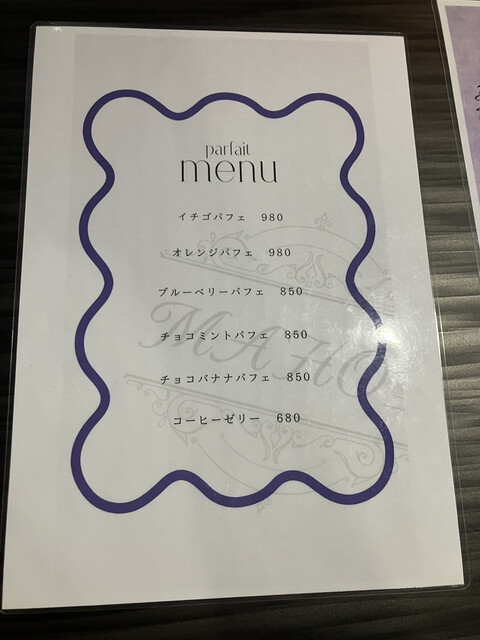 parfait
menu
イチゴパフェ 980
オレンジパフェ 980
ブルーベリーパフェ 850
チョコミントパフェ 850
チョコバナナパフェ 850
コーヒーゼリー 680
MAHO